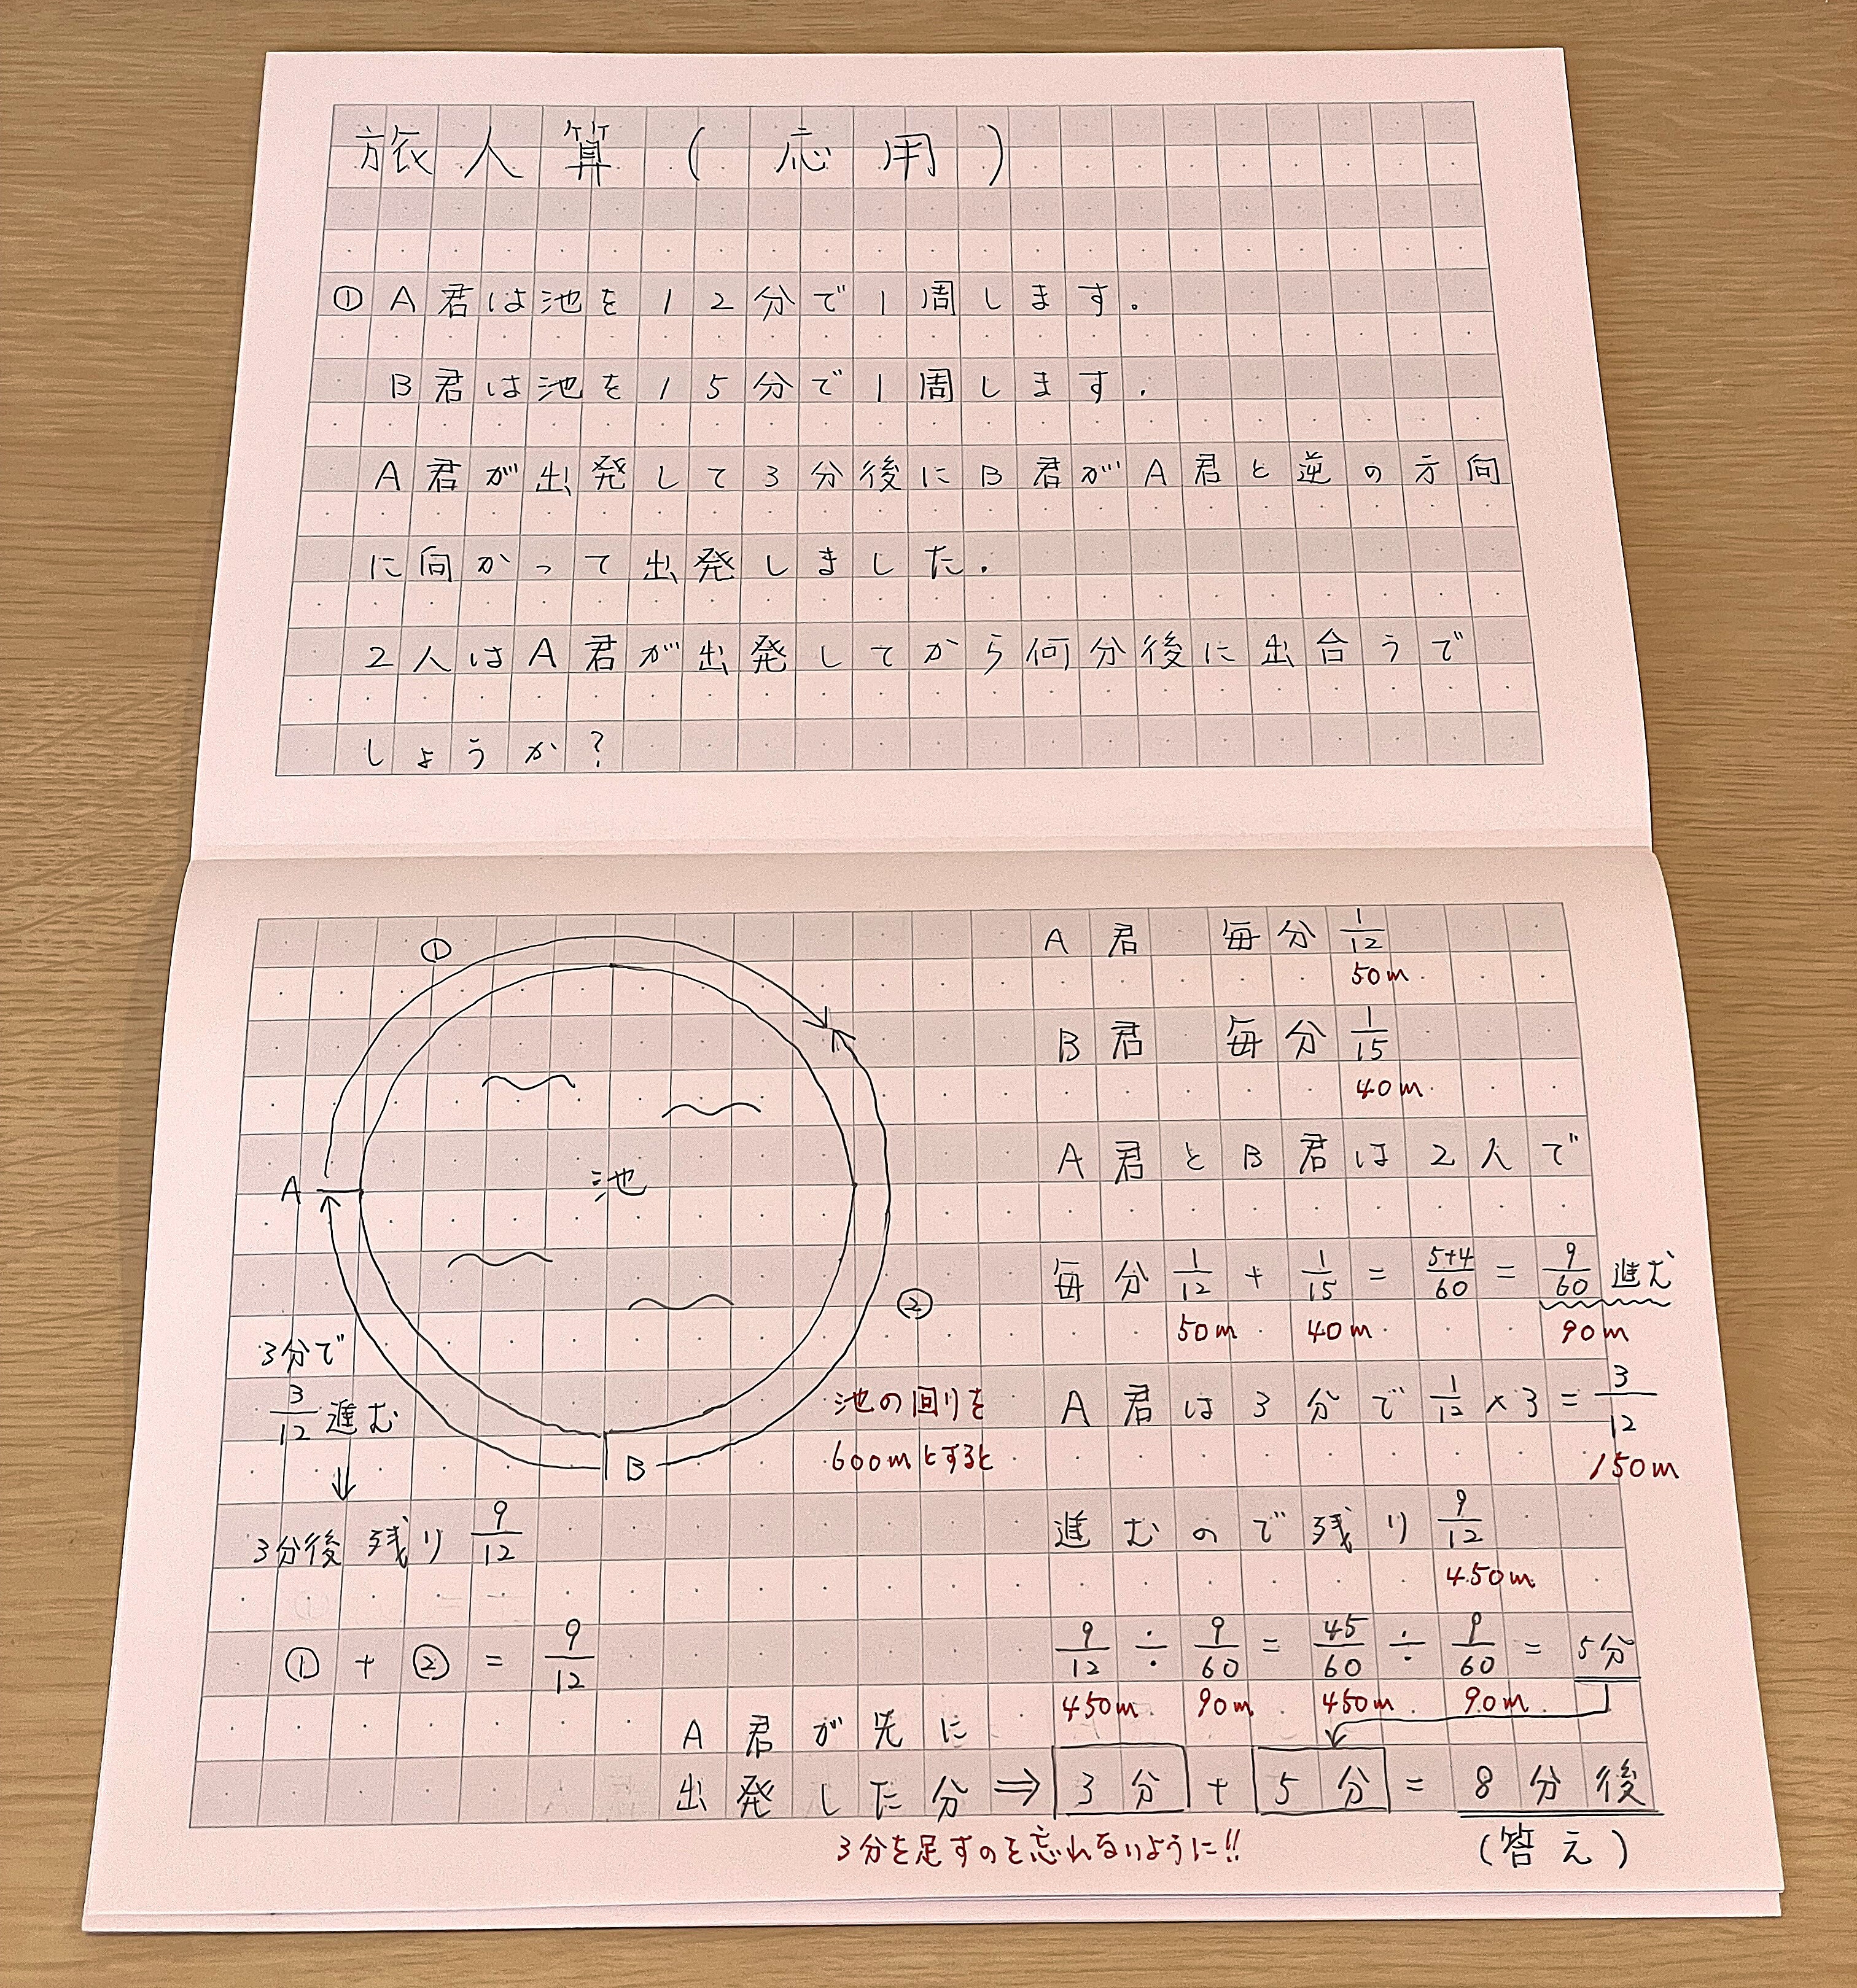 旅人算(応用)
① A君は池を12分で1周します。
B君は池を15分で1周します.
A君が出発して3分後にB君がA君と逆の方向
に向かって出発しました.
2人はA君が出発してから何分後に出合うで
しょうか?
①
A
池
②
B
3分で
3/12 進む
↓
3分後 残り 9/12
① + ② = 9/12
池の回りを
600mとすると
A君 毎分 1/12
50m
B君 毎分 1/15
40m
A君とB君は2人で
毎分 1/12 + 1/15 = 5+4/60 = 9/60 進む
50m 40m 90m
A君は3分で 1/12 × 3 = 3/12
150m
進むので残り 9/12
450m
9/12 ÷ 9/60 = 45/60 ÷ 9/60 = 5分
450m 90m 450m 90m
A君が先に
出発した分 ⇒ 3分 + 5分 = 8分後
3分を足すのを忘れないように!!
(答え)